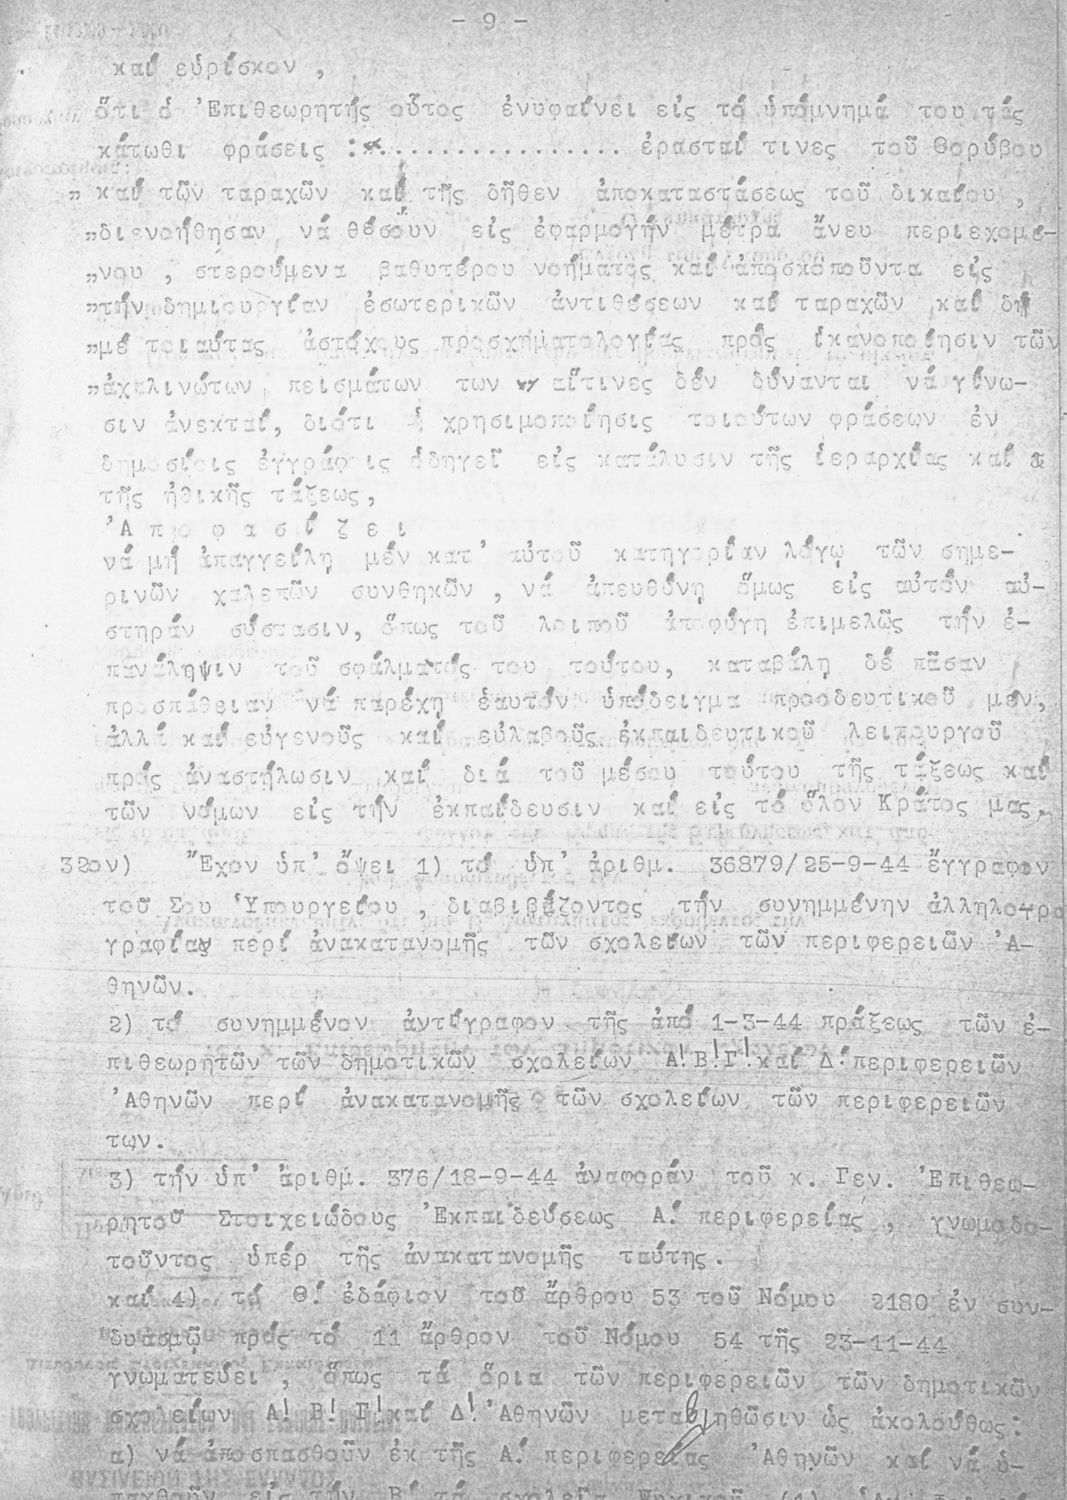 - 9 -
καί εὑρίσκον ,
ὅτι ὁ Ἐπιθεωρητής οὗτος ἐνυφαίνει εἰς τό ὑπόμνημά του τάς
κάτωθι φράσεις :"................. ἐρασταί τινες τοῦ θορύβου
" καί τῶν ταραχῶν καί τῆς δῆθεν ἀποκαταστάσεως τοῦ δικαίου ,
"διενοήθησαν νά θέσουν εἰς ἐφαρμογήν μέτρα ἄνευ περιεχομέ-
"νου , στερούμενα βαθυτέρου νοήματος καί ἀποσκοποῦντα εἰς
"τήν δημιουργίαν ἐσωτερικῶν ἀντιθέσεων καί ταραχῶν καί δή
"μέ τοιαύτας ἀστόχους προσχηματολογίας πρός ἱκανοποίησιν τῶν
"ἀχαλινώτων πεισμάτων των " αἵτινες δέν δύνανται νά γίνω-
σιν ἀνεκταί, διότι ἡ χρησιμοποίησις τοιούτων φράσεων ἐν
δημοσίοις ἐγγράφοις ὁδηγεῖ εἰς κατάλυσιν τῆς ἱεραρχίας καί
τῆς ἠθικῆς τάξεως,
Ἀ π ο φ α σ ί ζ ε ι
νά μή ἀπαγγείλη μέν κατ' αὐτοῦ κατηγορίαν λόγῳ τῶν σημε-
ρινῶν χαλεπῶν συνθηκῶν , νά ἀπευθύνη ὅμως εἰς αὐτόν αὐ-
στηράν σύστασιν, ὅπως τοῦ λοιποῦ ἀποφύγη ἐπιμελῶς τήν ἐ-
πανάληψιν τοῦ σφάλματός του τούτου, καταβάλη δέ πᾶσαν
προσπάθειαν νά παρέχη ἑαυτόν ὑπόδειγμα προοδευτικοῦ μέν,
ἀλλά καί εὐγενοῦς καί εὐλαβοῦς ἐκπαιδευτικοῦ λειτουργοῦ
πρός ἀναστήλωσιν καί διά τοῦ μέσου τούτου τῆς τάξεως καί
τῶν νόμων εἰς τήν ἐκπαίδευσιν καί εἰς τό ὅλον Κράτος μας,
32ον) Ἔχον ὑπ' ὄψει 1) τό ὑπ' ἀριθμ. 36879/25-9-44 ἔγγραφον
τοῦ Σου Ὑπουργείου , διαβιβάζοντος τήν συνημμένην ἀλληλογρα
γραφίαν περί ἀνακατανομῆς τῶν σχολείων τῶν περιφερειῶν Ἀ-
θηνῶν.
2) τό συνημμένον ἀντίγραφον τῆς ἀπό 1-3-44 πράξεως τῶν ἐ-
πιθεωρητῶν τῶν δημοτικῶν σχολείων Α! Β! Γ! καί Δ! περιφερειῶν
Ἀθηνῶν περί ἀνακατανομῆς τῶν σχολείων τῶν περιφερειῶν
των.
3) τήν ὑπ' ἀριθμ. 376/18-9-44 ἀναφοράν τοῦ κ. Γεν. Ἐπιθεω-
ρητοῦ Στοιχειώδους Ἐκπαιδεύσεως Α! περιφερείας , γνωμοδο-
τοῦντος ὑπέρ τῆς ἀνακατανομῆς ταύτης.
καί 4) τό Θ! ἐδάφιον τοῦ ἄρθρου 53 τοῦ Νόμου 2180 ἐν συν-
δυασμῷ πρός τό 11 ἄρθρον τοῦ Νόμου 54 τῆς 23-11-44
γνωματεύει , ὅπως τά ὅρια τῶν περιφερειῶν τῶν δημοτικῶν
σχολείων Α! Β! Γ! καί Δ! Ἀθηνῶν μεταβληθῶσιν ὡς ἀκολούθως:
α) νά ἀποσπασθοῦν ἐκ τῆς Α! περιφερείας Ἀθηνῶν καί νά ὑ-
παχθοῦν εἰς τήν Β! τά σχολεῖα Ψυχικοῦ (1)